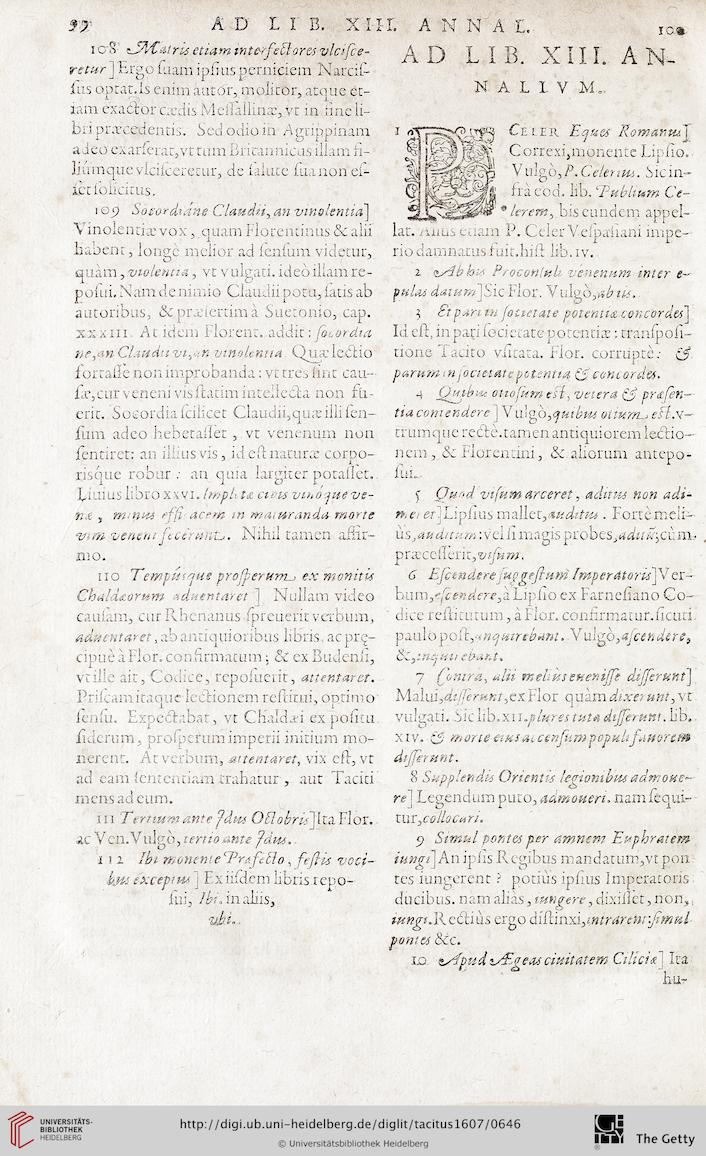 99 AD LIB. XIII. ANNAL. 100
108 Matris etiam interfectores vlcisce-
retur] Ergo suam ipsius perniciem Narcis-
sus optat. Is enim autor, molitor, atque et-
iam exactor cædis Messallinæ, vt in fine li-
bri præcedentis. Sed odio in Agrippinam
adeo exarserat, vt tum Britannicus illam fi-
liúmque vlcisceretur, de salute sua non es-
set solicitus.
109 Socordiáne Claudii, an vinolentia]
Vinolentiæ vox, quam Florentinus & alii
habent, longè melior ad sensum videtur,
quàm, violentia, vt vulgati. ideò illam re-
posui. Nam de nimio Claudii potu, satis ab
autoribus, & præsertim à Suetonio, cap.
XXXIII. At idem Florent. addit: socordia
ne, an Claudii vi, an vinolentia Quæ lectio
fortasse non improbanda: vt tres sint cau-
sæ, cur veneni vis statim intellecta non fu-
erit. Socordia scilicet Claudii, quæ illi sen-
sum adeo hebetasset, vt venenum non
sentiret: an illius vis, id est naturæ corpo-
risque robur: an quia largiter potasset.
Liuius libro XXVI. Impletæ cibis vinóque ve-
næ, minus effi acem in maturanda morte
vim veneni fecerunt. Nihil tamen affir-
mo.
110 Tempúsque prosperum ex monitis
Chaldæorum aduentaret] Nullam video
causam, cur Rhenanus spreuerit verbum,
aduentaret, ab antiquioribus libris, ac prę-
cipuè à Flor. confirmatum; & ex Budensi,
vt ille ait, Codice, reposuerit, attentaret.
Priscam itaque lectionem restitui, optimo
sensu. Expectabat, vt Chaldæi ex positu
siderum, prosperum imperii initium mo-
nerent. At verbum, attentaret, vix est, vt
ad eam sententiam trahatur, aut Taciti
mens ad eum.
111 Tertium ante Idus Octobris] Ita Flor.
ac Ven. Vulgò, tertio ante Idus.
112 Ibi monente Præfecto, festis voci-
bus exceptus] Ex iisdem libris repo-
sui, Ibi. in aliis,
vbi.
AD LIB. XIII. AN-
NALIVM.
1 P CELER Eques Romanus]
Correxi, monente Lipsio.
Vulgò, P. Celerius. Sic in-
frà cod. lib. Publium Ce-
lerem, bis eundem appel-
lat. Alius etiam P. Celer Vespasiani impe-
rio damnatus fuit. hist lib. IV.
2 Ab his Proconsuli venenum inter e-
pulas datum] Sic Flor. Vulgò, ab iis.
3 Et pari in societate potentiæ concordes]
Id est, in pari societate potentiæ: transposi-
tione Tacito vsitata. Flor. corruptè: &
parum in societate potentia & concordes.
4 Quibus otiosum est, vetera & præsen-
tia contendere] Vulgò, quibus otium est. v-
trumque rectè. tamen antiquiorem lectio-
nem, & Florentini, & aliorum antepo-
sui.
5 Quod visum arceret, aditus non adi-
meret] Lipsius mallet, auditus. Fortè meli-
ùs, auditum: vel si magis probes, aditũ; cùm
præcesserit, visum.
6 Escendere suggestum Imperatoris] Ver-
bum, escendere, à Lipsio ex Farnesiano Co-
dice restitutum, à Flor. confirmatur. sicuti
paulo post, anquirebant. Vulgò, ascendere,
&, inquirebant.
7 Contra, alii meliùs euenisse disserunt]
Malui, disserunt, ex Flor quàm dixerunt, vt
vulgati. Sic lib. XII. plures tuta disserunt. lib.
XIV. & morte eius accensum populi fauorem
disserunt.
8 Supplendis Orientis legionibus admoue-
re] Legendum puto, admoueri. nam sequi-
tur, collocari.
9 Simul pontes per amnem Euphratem
iungi] An ipsis Regibus mandatum, vt pon
tes iungerent? potiùs ipsius Imperatoris
ducibus. nam aliàs, iungere, dixisset, non,
iungi. Rectiùs ergo distinxi, intrarent: simul
pontes &c.
10 Apud Ægeas ciuitatem Ciliciæ] Ita
hu-
UNIVERSITÄTS-
BIBLIOTHEK
HEIDELBERG
http://digi.ub.uni-heidelberg.de/diglit/tacitus1607/0646
© Universitätsbibliothek Heidelberg
GETTY
The Getty